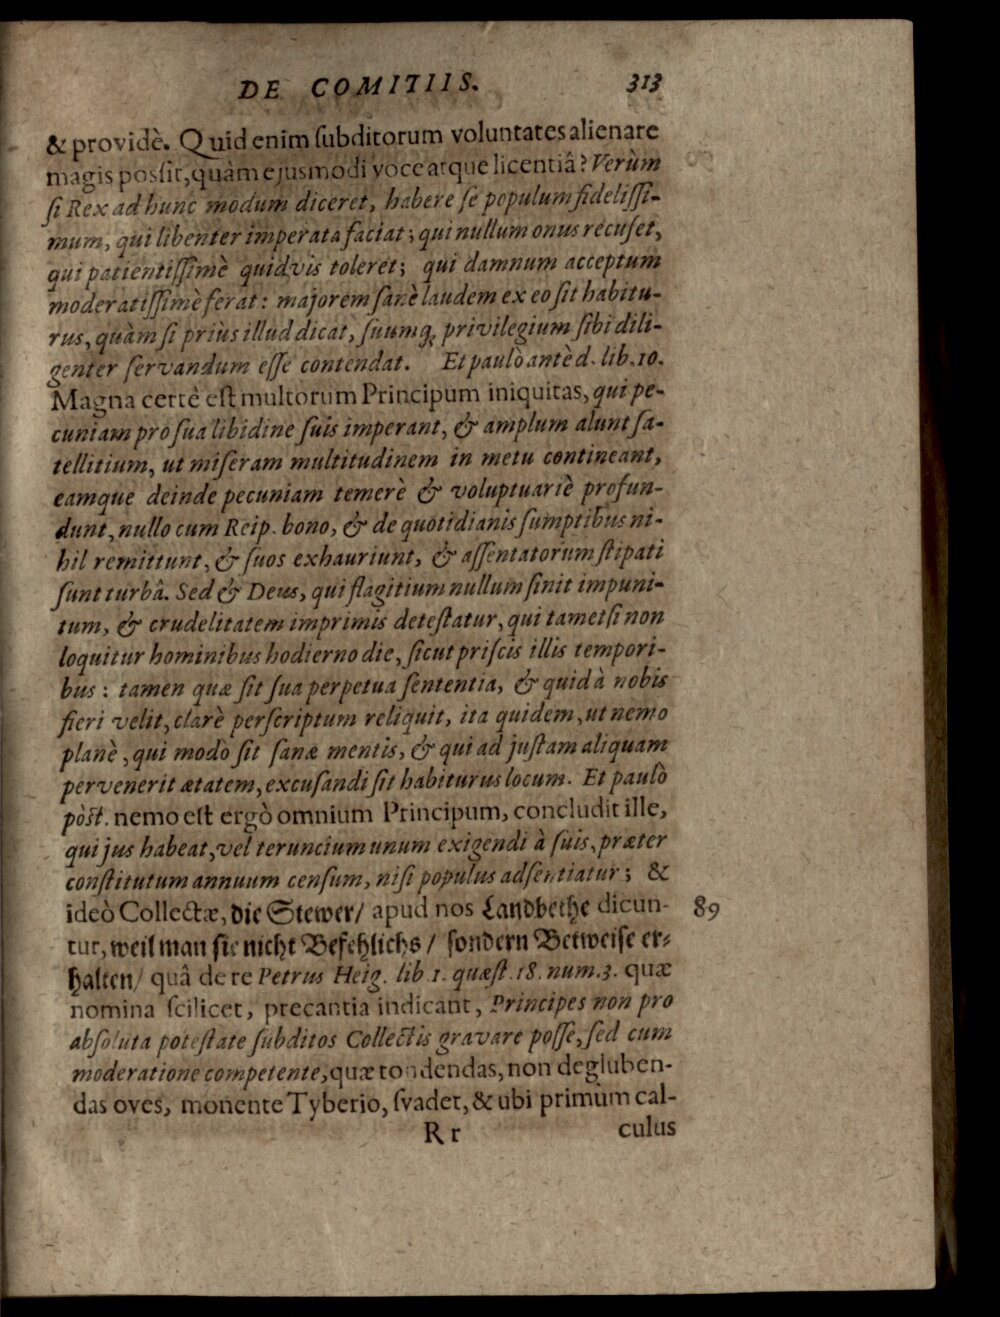 DE COMITIIS. 313
& providè. Quid enim ſubditorum voluntates alienare
magis poſsit, quàm ejusmodi voce atque licentiâ? Verùm
ſi Rex ad hunc modum diceret, habere ſe populum fideliſſi-
mum, qui libenter imperata faciat; qui nullum onus recuſet,
qui patientiſſimè quidvis toleret; qui damnum acceptum
moderatiſſimè ferat: majorem ſanè laudem ex eo ſit habitu-
rus, quàm ſi priùs illud dicat, ſuumq; privilegium ſibi dili-
genter ſervandum eſſe contendat. Et paulò antè d. lib. 10.
Magna certè eſt multorum Principum iniquitas, qui pe-
cuniam pro ſua libidine ſuis imperant, & amplum alunt ſa-
tellitium, ut miſeram multitudinem in metu contineant,
eamque deinde pecuniam temerè & voluptuariè profun-
dunt, nullo cum Reip. bono, & de quotidianis ſumptibus ni-
hil remittunt, & ſuos exhauriunt, & aſſentatorum ſtipati
ſunt turbâ. Sed & Deus, qui flagitium nullum ſinit impuni-
tum, & crudelitatem imprimis deteſtatur, qui tametſi non
loquitur hominibus hodierno die, ſicut priſcis illis tempori-
bus: tamen quæ ſit ſua perpetua ſententia, & quid à nobis
fieri velit, clarè perſcriptum reliquit, ita quidem, ut nemo
planè, qui modò ſit ſanæ mentis, & qui ad juſtam aliquam
pervenerit ætatem, excuſandi ſit habiturus locum. Et paulò
pòſt. nemo eſt ergò omnium Principum, concludit ille,
qui jus habeat, vel teruncium unum exigendi à ſuis, præter
conſtitutum annuum cenſum, niſi populus adſentiatur; &
ideò Collectæ, die Stewer/ apud nos Landbethe dicun- 89
tur, weil man ſie nicht Befehlichs/ ſondern Betweiſe er-
halten/ quâ de re Petrus Heig. lib. 1. quæſt. 18. num. 3. quæ
nomina ſcilicet, precantia indicant, Principes non pro
abſoluta poteſtate ſubditos Collectis gravare poſſe, ſed cum
moderatione competente, quæ tondendas, non degluben-
das oves, monente Tyberio, ſvadet, & ubi primum cal-
R r culus